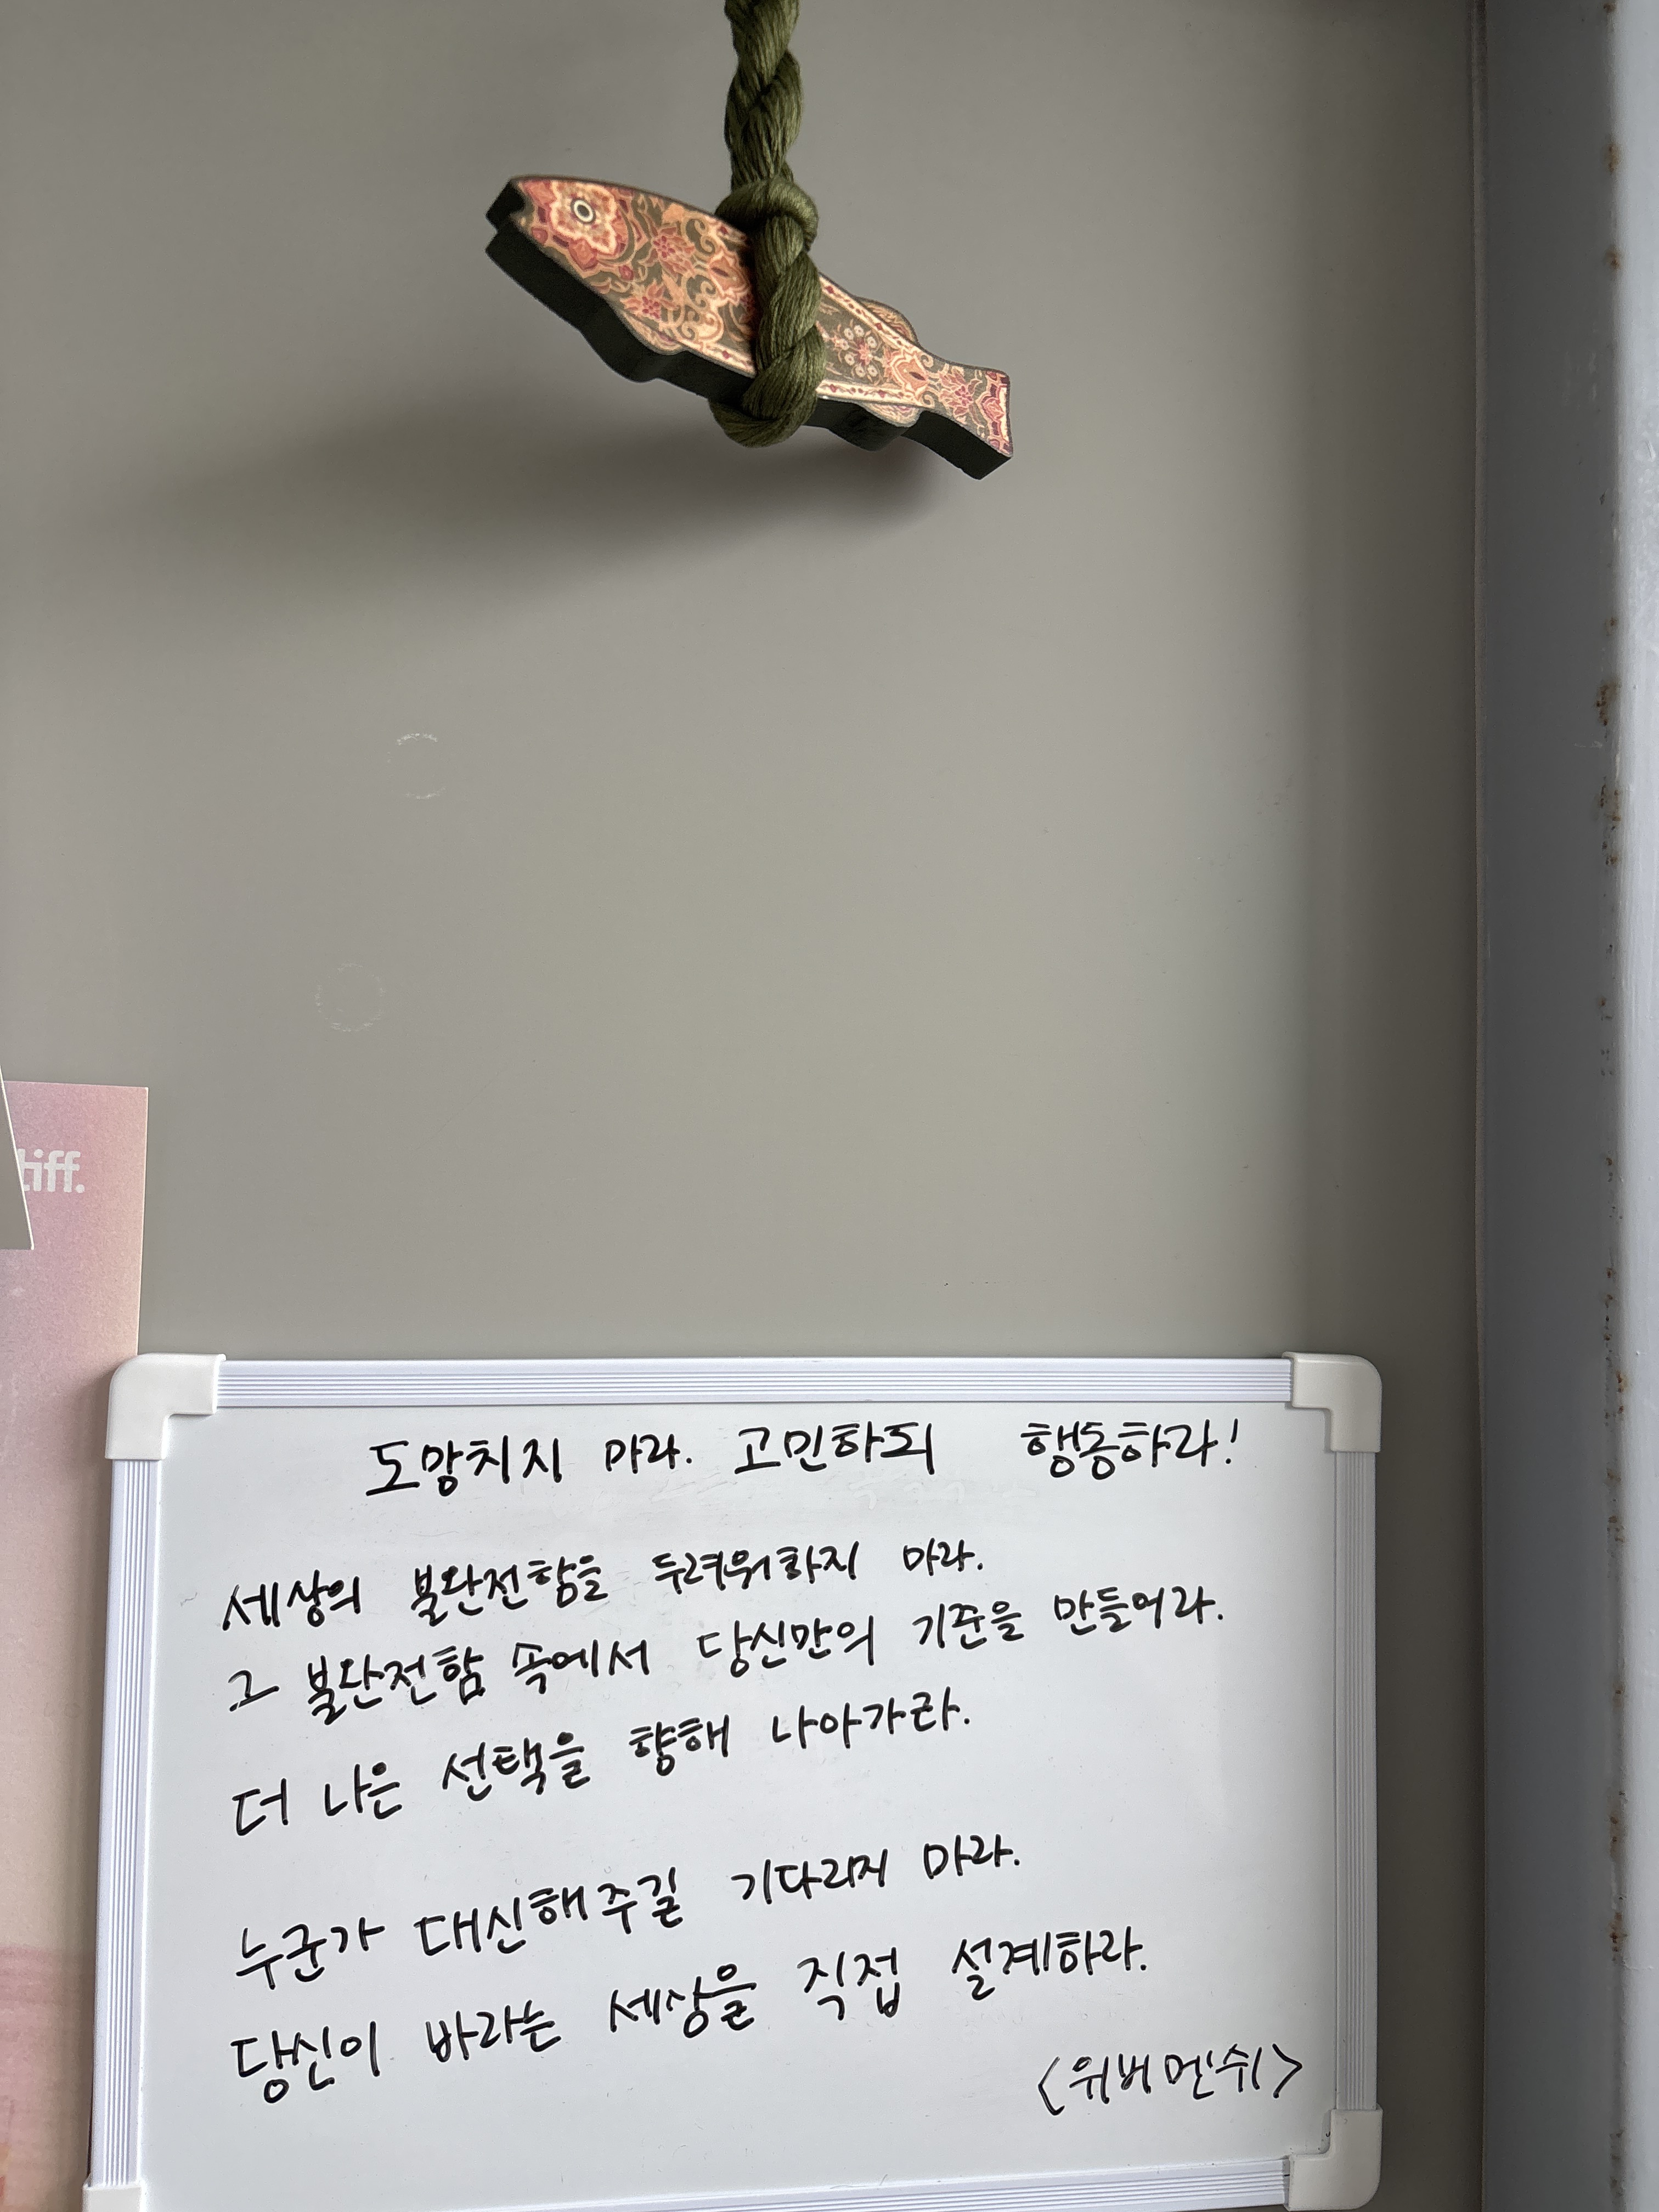 tiff.
도망치지 마라. 고민하되 행동하라!
세상의 불완전함을 두려워하지 마라.
그 불완전함 속에서 당신만의 기준을 만들어라.
더 나은 선택을 향해 나아가라.
누군가 대신해주길 기다리지 마라.
당신이 바라는 세상을 직접 설계하라.
<위버멘쉬>